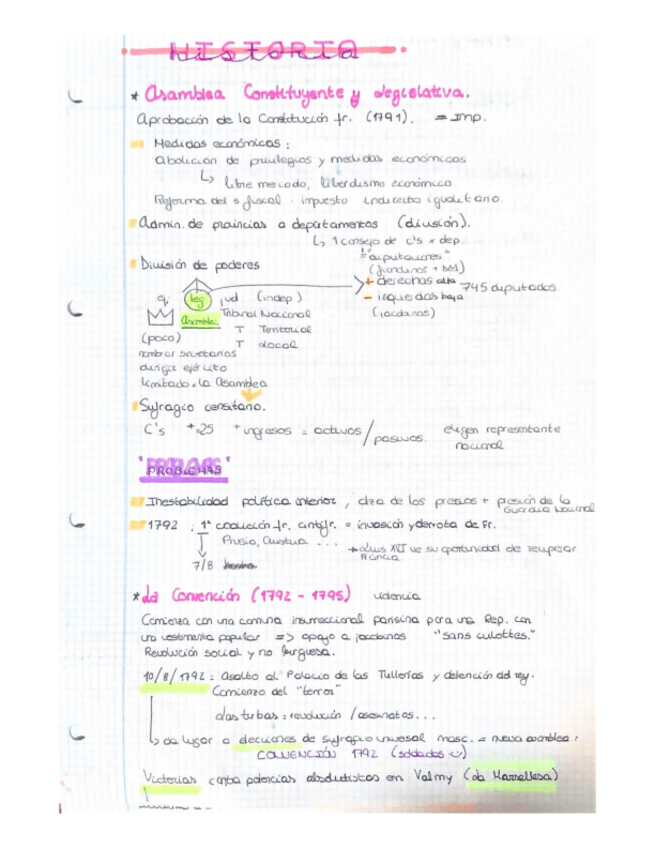 HISTORIA
* Asamblea Constituyente y Legislativa.
Aprobación de la Constitución fr. (1791). = Imp.
Medidas económicas:
Abolición de privilegios y medidas económicas
↳ libre mercado, liberalismo económico
Reforma del s fiscal: impuesto indirecto igualitario.
Admin. de provincias a departamentos (división).
↳ 1 consejo de c's x dep.
División de poderes
"diputaciones"
(girondinos +
+ derechas alta
- izquierdas baja
745 diputados
(jacobinos)
ej. leg jud. (indep)
Asamblea Tribunal Nacional
T Territorial
T Local
(poco)
nombrar secretarios
dirigir ejército
limitado x la Asamblea
Sufragio censitario.
C's +25 + ingresos = activos / pasivos. eligen representante nacional
"PROBLEMAS"
Inestabilidad política interior, dza de los precios + presión de la Guardia Nacional
1792: 1ª coalición fr. antifr. = invasión y derrota de Fr.
Prusia, Austria ...
→ Luis XVI ve su oportunidad de recuperar Francia.
7/8
* La Convención (1792 - 1795) violencia
Comienza con una comuna insurreccional parisina para una Rep. con
una vestimenta popular => apoyo a jacobinos "sans culottes."
Revolución social y no burguesa.
10/8/1792: Asalto al Palacio de las Tullerías y detención del rey.
Comienzo del "terror"
Las turbas = revolución / asesinatos...
↳ da lugar a elecciones de sufragio universal masc. = nueva asamblea:
CONVENCIÓN 1792 (soldados)
Victorias contra potencias absolutistas en Valmy (La Marsellesa)